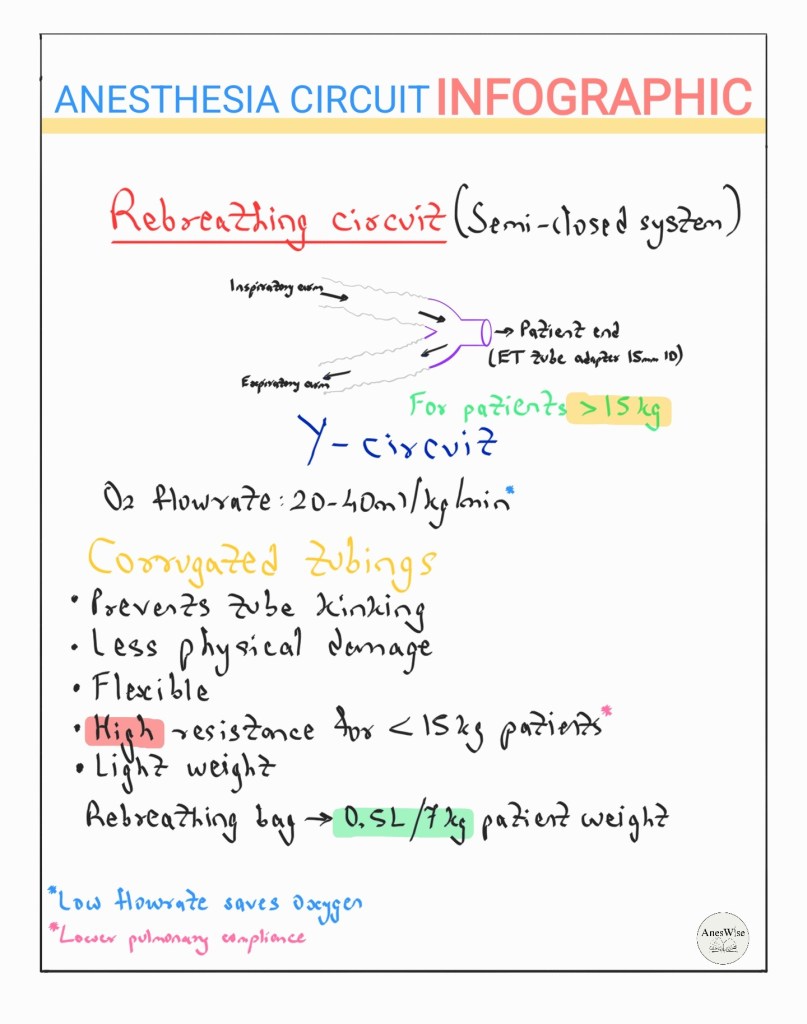 ANESTHESIA CIRCUIT INFOGRAPHIC
Rebreathing circuit (Semi-closed system)
Inspiratory arm
→ Patient end
(ET tube adapter 15mm ID)
Expiratory arm
For patients >15 kg
Y-circuit
O2 flowrate: 20-40ml/kg/min*
Corrugated tubings
• Prevents tube kinking
• Less physical damage
• Flexible
• High resistance for <15kg patients*
• Light weight
Rebreathing bag → 0.5L/7kg patient weight
*Low flowrate saves oxygen
*Lower pulmonary compliance
AnesWise